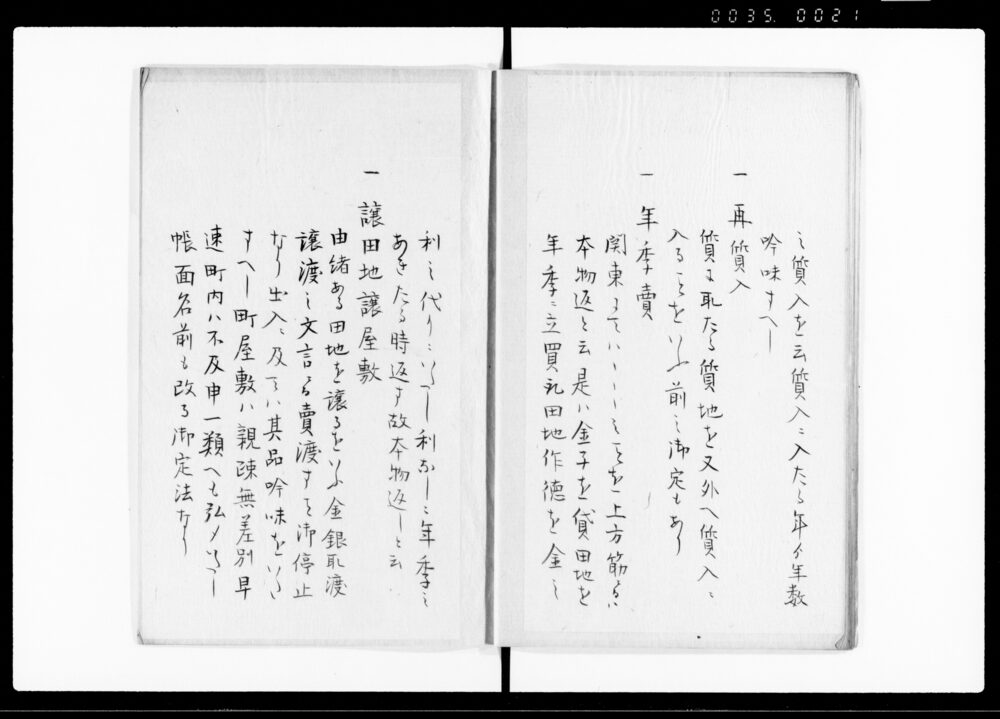 0035.0021
之質入を云質入ニ入たる年ゟ年数
吟味すへし
一 再質入
質に取たる質地を又外へ質入ニ
入ることをいふ前之御定もあり
一 年季賣
関東にてハ
本物返と云是ハ金子を貸田地を
年季ニ立買礼田地作徳を金之
利之代りニいたし利なしニ年季之
あきたる時返す故本物返しと云
一 譲田地譲屋敷
由緒ある田地を譲るをいふ金銀取渡
譲渡之文言ニ而賣渡すハ御停止
なり出入ニ及てハ其品吟味をいたし
すへし町屋敷ハ親疎無差別早
速町内ハ不及申一類へも弘メいたし
帳面名前も改る御定法なり